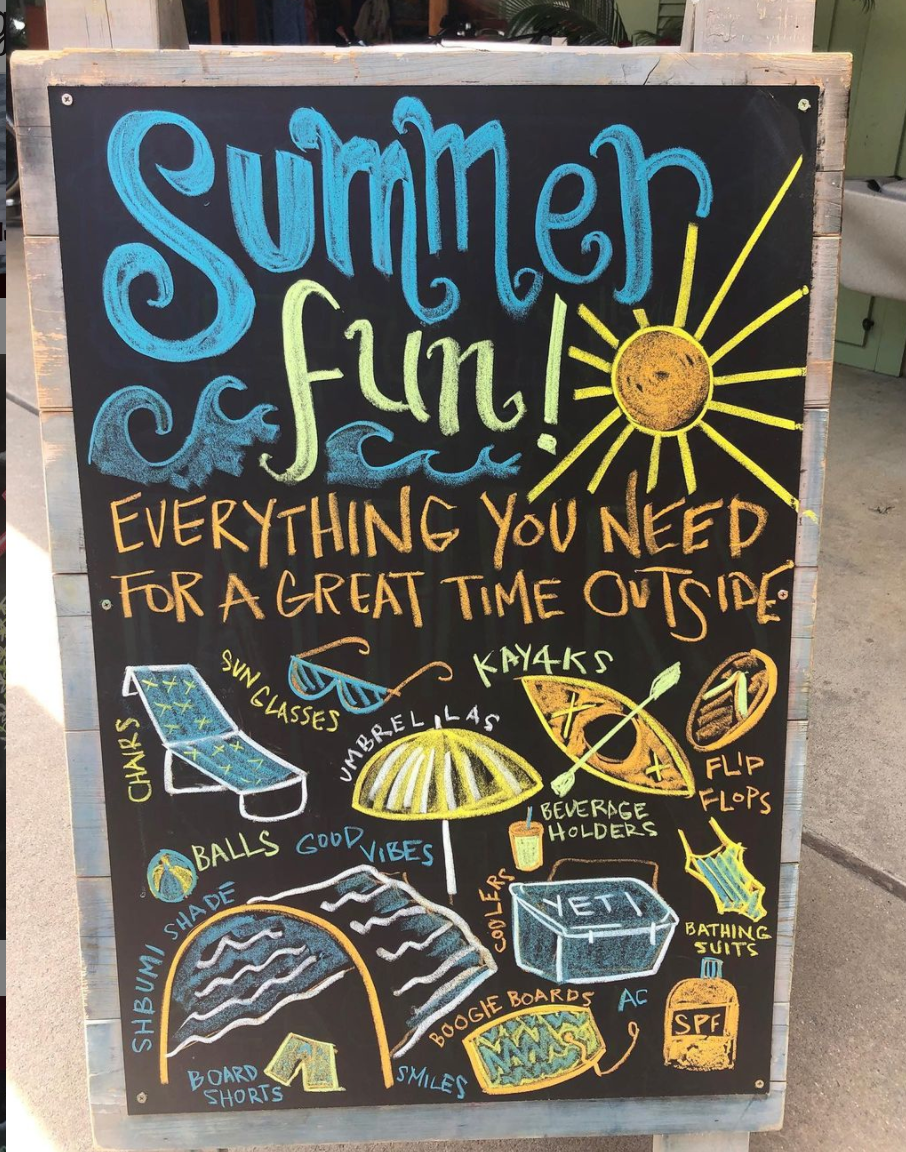 Summer
fun!
EVERYTHING YOU NEED
FOR A GREAT TIME OUTSIDE
CHAIRS
SUN GLASSES
UMBRELLAS
KAY4KS
FLIP
FLOPS
BEVERAGE
HOLDERS
BALLS
GOOD VIBES
COOLERS
YETI
BATHING
SUITS
SHBUMI SHADE
BOOGIE BOARDS
AC
SPF
BOARD
SHORTS
SMILES